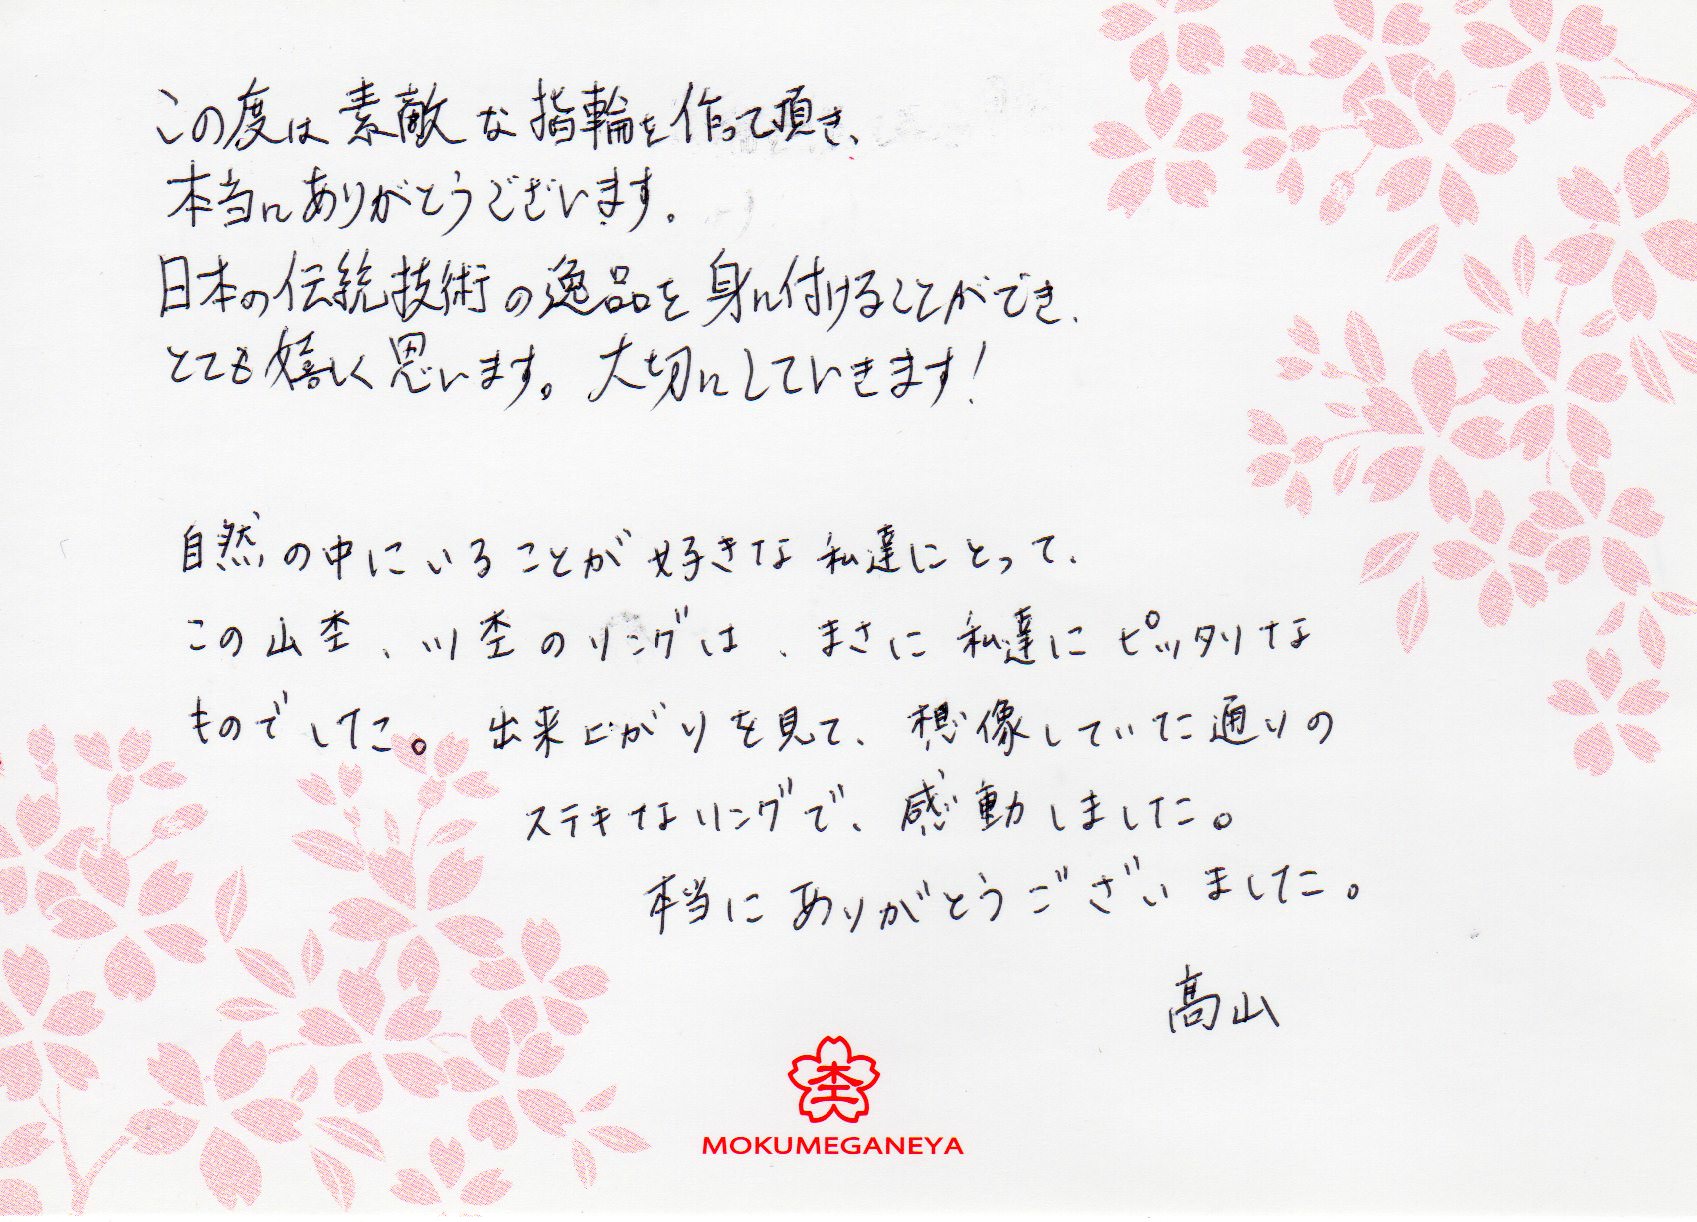 この度は素敵な指輪を作って頂き、
本当にありがとうございます。
日本の伝統技術の逸品を身に付けることができ、
とても嬉しく思います。大切にしていきます!
自然の中にいることが好きな私達にとって、
この山杢、川杢のリングは、まさに私達にピッタリな
ものでした。出来上がりを見て、想像していた通りの
ステキなリングで、感動しました。
本当にありがとうございました。
髙山
杢
MOKUMEGANEYA